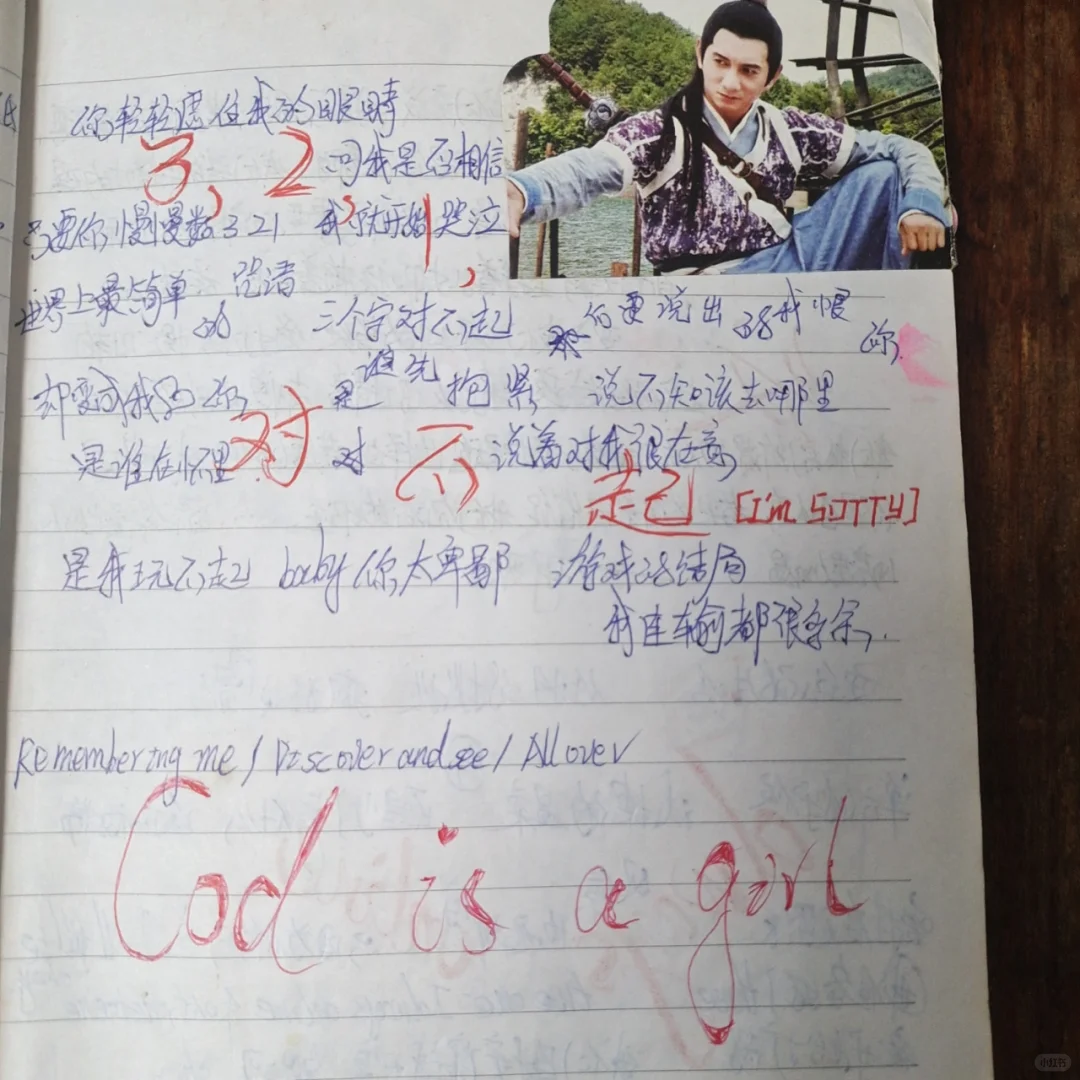 你轻轻遮住我的眼睛
3, 2, 1,
问我是否相信
只要你慢慢数321 我就开始哭泣
世界上最简单的 凭请 三个字对不起
你要说出的我恨你
却变成我的你 是谁先抱紧 说不知该去哪里
是谁在怀里 对 说着对我很在意
对 不 起 [I'm sorry]
是我玩不起 baby你太卑鄙 游戏的结局
我连输都很多余.
Remembering me / Discover and see / All over
God is a girl
小红书